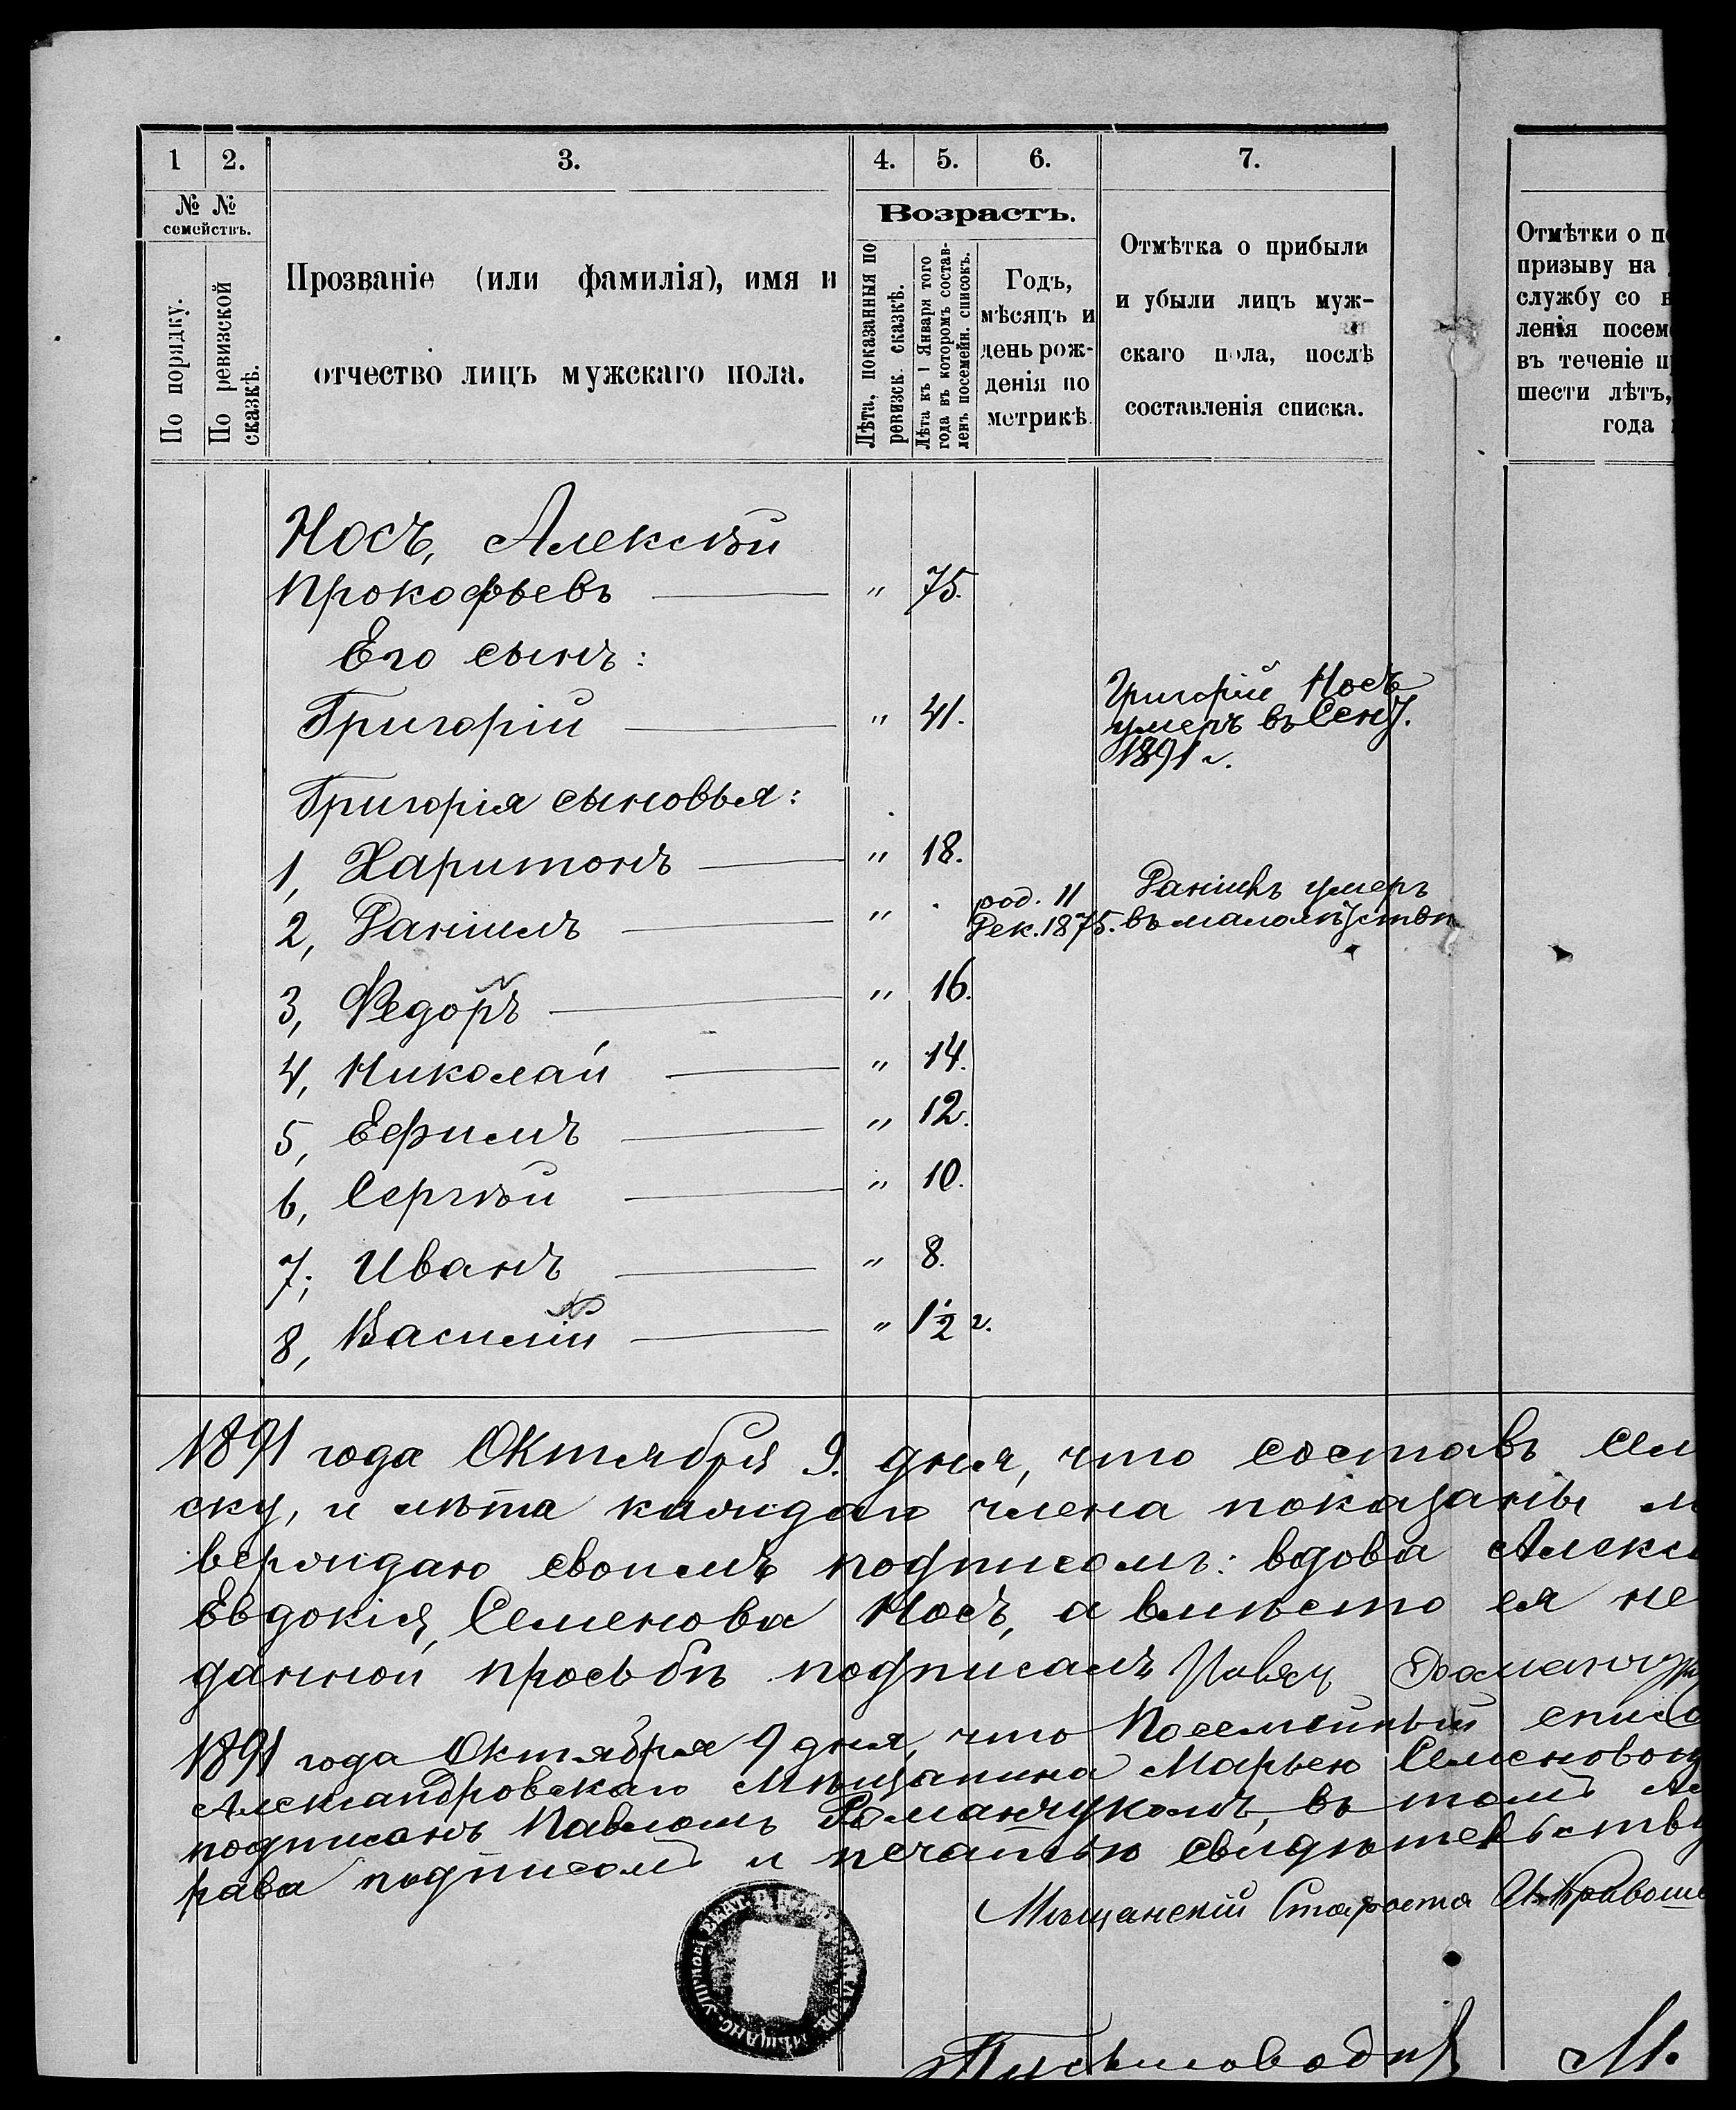 1 2. 3. 4. 5. 6. 7.
№ №
семействъ.
По порядку.
По ревизской
сказкѣ.
Прозваніе (или фамилія), имя и
отчество лицъ мужскаго пола.
Возрастъ.
Лѣта, показанныя по
ревизск. сказкѣ.
Лѣта къ 1 Января того
года въ которомъ состав-
ленъ посемейн. списокъ.
Годъ,
мѣсяцъ и
день рож-
денія по
метрикѣ.
Отмѣтка о прибыли
и убыли лицъ муж-
скаго пола, послѣ
составленія списка.
Отмѣтки о п
призыву на
службу со
ленія посем
въ теченіе п
шести лѣтъ,
года
Носъ, Алексѣй
Прокофьевъ — " 75.
Его сынъ:
Григорій — " 41.
Григорій Носъ
умеръ въ Сент.
1891 г.
Григорія сыновья:
1, Харитонъ — " 18.
2, Даніилъ — " .
род. 11
Дек. 1875.
Даніилъ умеръ
въ малолѣтствѣ
3, Федоръ — " 16.
4, Николай — " 14.
5, Ефимъ — " 12.
6, Сергѣй — " 10.
7, Иванъ — " 8.
8, Василій — " 1½ г.
1891 года Октября 9. дня, что составъ сем
ску, и лѣта каждаго члена показаны
верждаю своимъ подписомъ: вдова Алекс
Евдокія Семенова Носъ, а вмѣсто ея не
данной просьбѣ подписалъ Павелъ Романчу
1891 года Октября 9 дня, что Посемейный списо
Александровскаго Мѣщанина Марьею Семеновою
подписанъ Павломъ Романчукомъ, въ томъ
рава подписомъ и печатью свидѣтельству
Мѣщанскій Староста Кравоше
Письмоводит М.